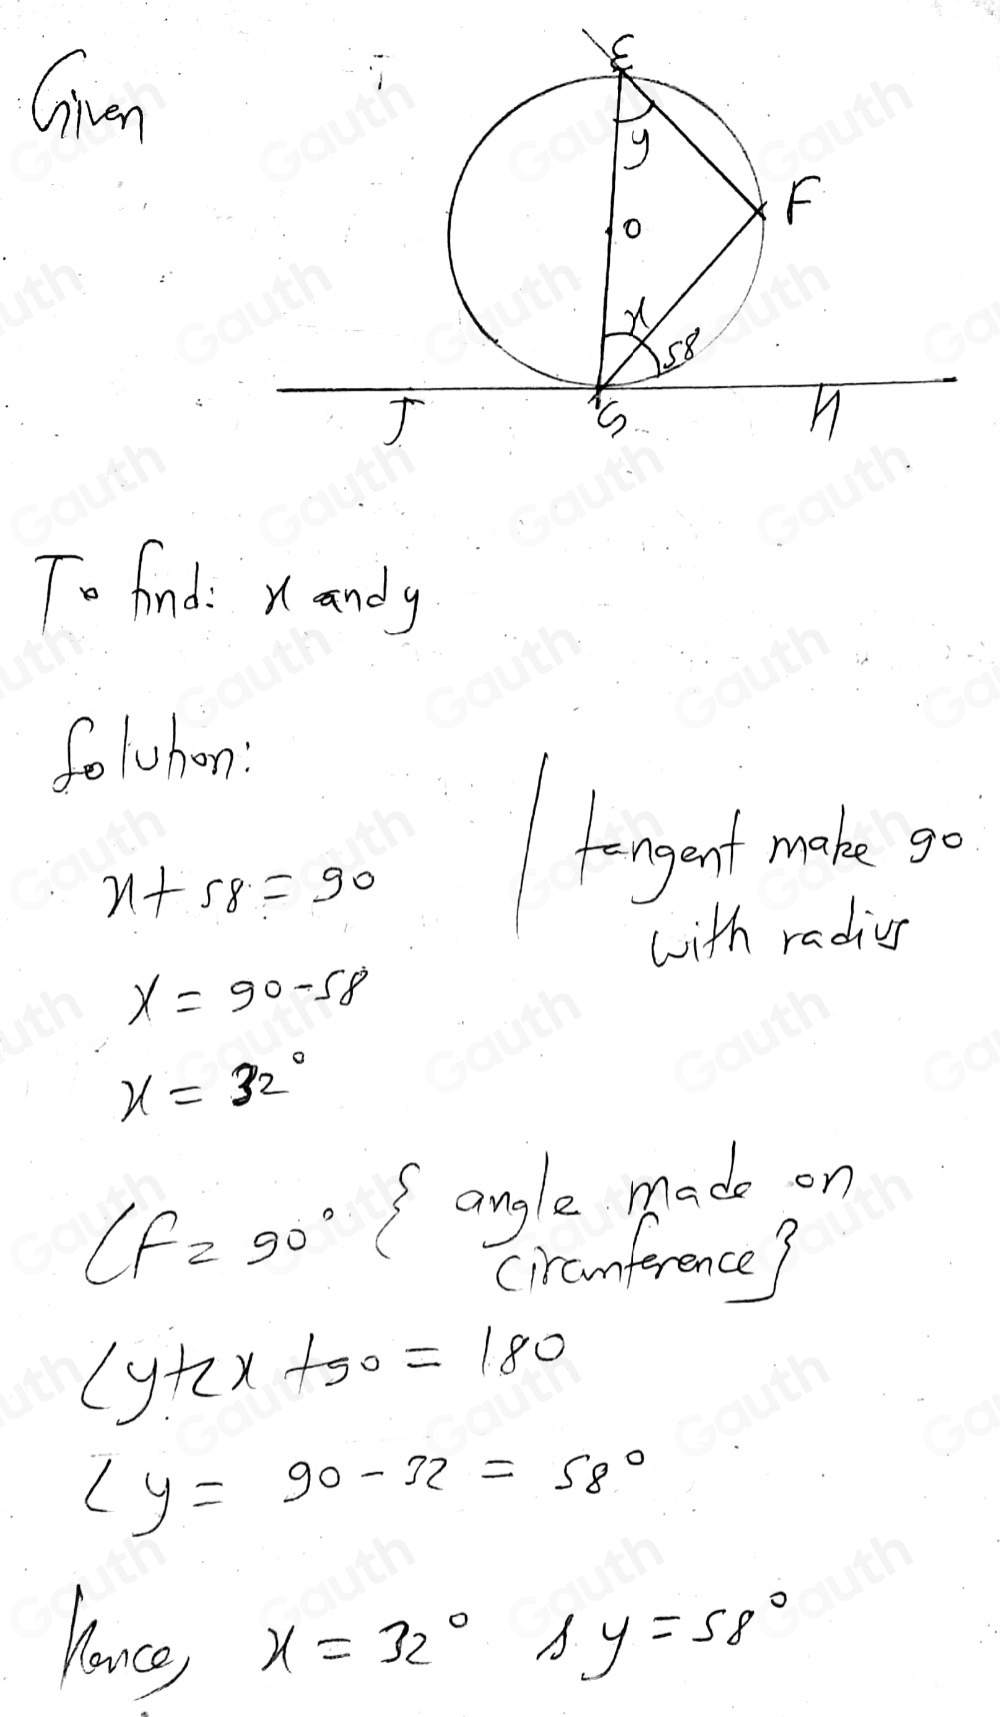 Given
E
y
F
O
x
58
J
G
H
To find: x and y
Solution:
x + 58 = 90
tangent make 90
with radius
x = 90 - 58
x = 32°
∠F = 90° { angle made on
circumference }
∠y + ∠x + 90 = 180
∠y = 90 - 32 = 58°
Hence, x = 32° & y = 58°
Gauth